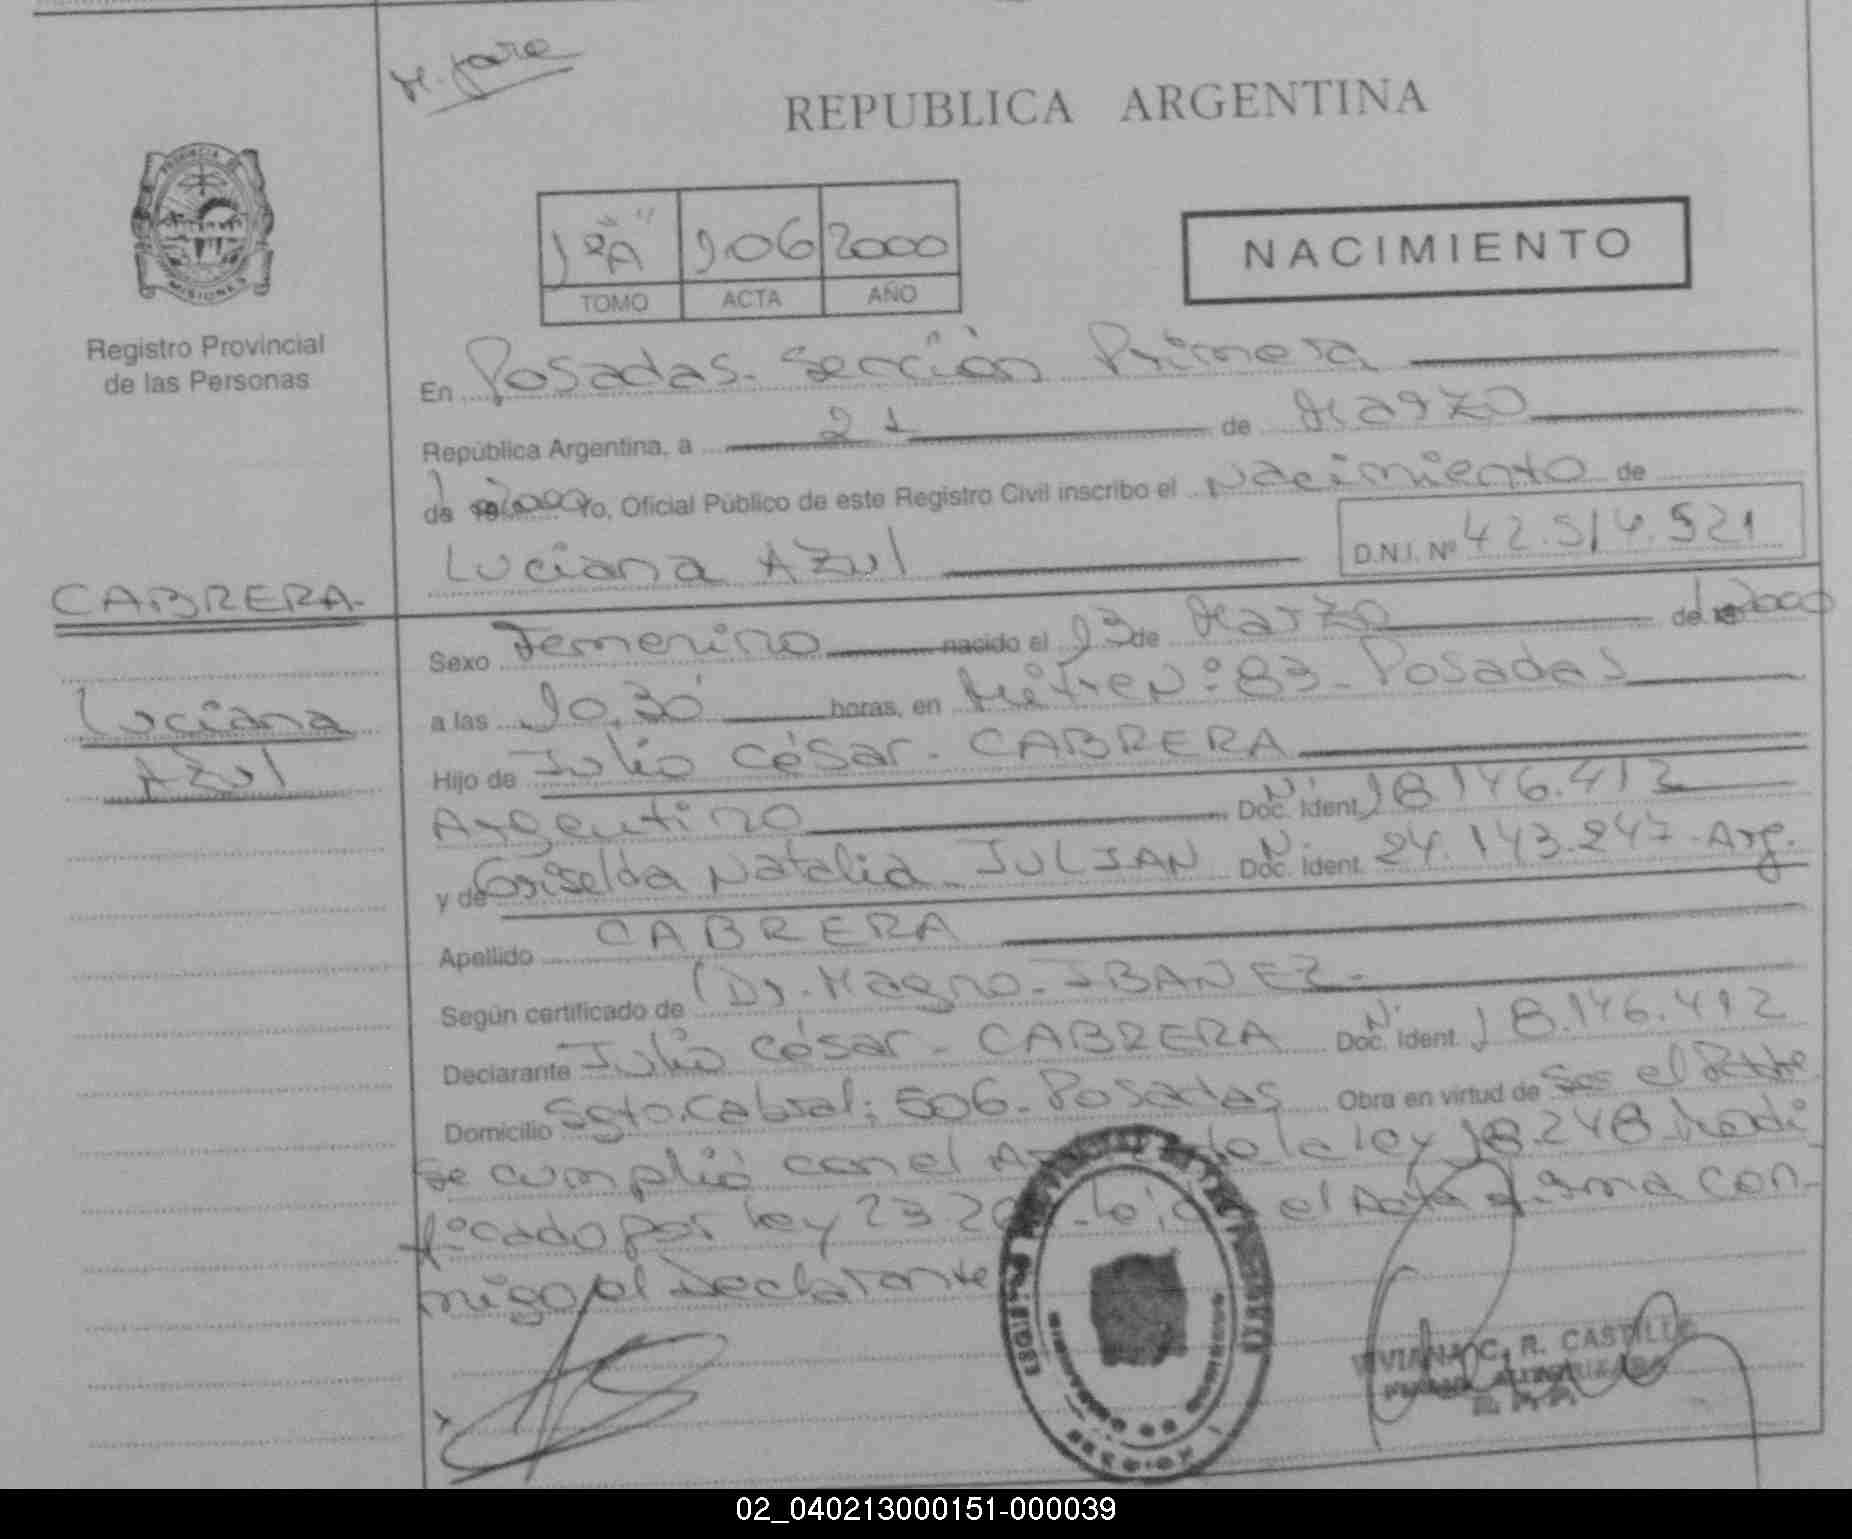 REPUBLICA ARGENTINA
PROVINCIA DE
MISIONES
Registro Provincial
de las Personas
1º "A" 106 2000
TOMO ACTA AÑO
NACIMIENTO
En Posadas. Sección Primera
República Argentina, a 21 de Marzo
de 2000 Yo, Oficial Público de este Registro Civil inscribo el Nacimiento de
Luciana Azul D.N.I. Nº 42.514.521
CABRERA-
Luciana
Azul
Sexo Femenino nacido el 13 de Marzo de 2000
a las 10,30 horas, en Mitre Nº 83- Posadas
Hijo de Julio César- CABRERA
Argentino Doc. Ident. Nº 18.146.412
y de Griselda Natalia- JULIAN Doc. Ident. Nº 24.143.247- Arg.
Apellido CABRERA
Según certificado de (Dr. Magno- IBAÑEZ-
Declarante Julio César- CABRERA Doc. Ident. Nº 18.146.412
Domicilio Sgto. Cabral: 506- Posadas Obra en virtud de Ser el Padre
Se cumplió con el de la ley 18.248 modi
ficado por ley 23.2 el Acta firma con-
migo el Declarante
VIVIANA C. R. CASTILLO
02_040213000151-000039